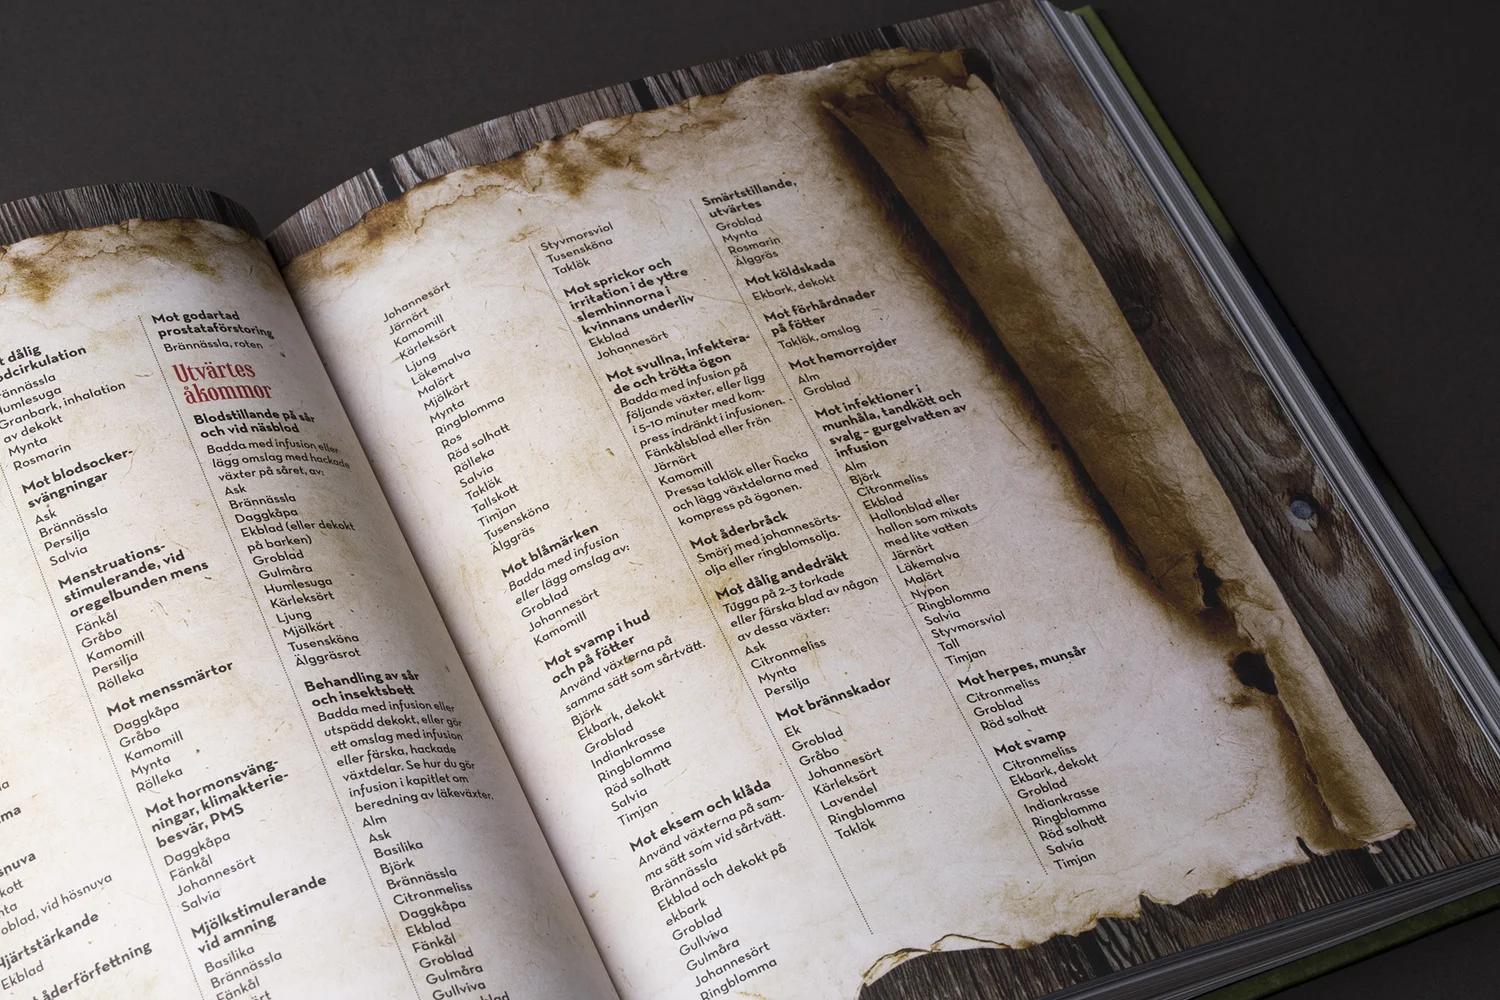 t dålig
odcirkulation
rännässla
Humlesuga
Granbark, inhalation
av dekott
Mynta
Rosmarin
Mot blodsocker-
svängningar
Ask
Brännässla
Persilja
Salvia
Menstruations-
stimulerande, vid
oregelbunden mens
Fänkål
Gråbo
Kamomill
Persilja
Rölleka
Mot menssmärtor
Daggkåpa
Gråbo
Kamomill
Mynta
Rölleka
Mot hormonsväng-
ningar, klimakterie-
besvär, PMS
Daggkåpa
Fänkål
Johannesört
Salvia
Mjölkstimulerande
vid amning
Basilika
Brännässla
Fänkål
oblad, vid hösnuva
Hjärtstärkande
Ekblad
t åderförfettning
Mot godartad
prostataförstoring
Brännässla, roten
Utvärtes
åkommor
Blodstillande på sår
och vid näsblod
Badda med infusion eller
lägg omslag med hackade
växter på såret, av:
Ask
Brännässla
Daggkåpa
Ekblad (eller dekokt
på barken)
Groblad
Gulmåra
Humlesuga
Kärleksört
Ljung
Mjölkört
Tusensköna
Älggräsrot
Behandling av sår
och insektsbett
Badda med infusion eller
utspädd dekokt, eller gör
ett omslag med infusion
eller färska, hackade
växtdelar. Se hur du gör
infusion i kapitlet om
beredning av läkeväxter.
Alm
Ask
Basilika
Björk
Brännässla
Citronmeliss
Daggkåpa
Ekblad
Fänkål
Groblad
Gulmåra
Gullviva
Johannesört
Järnört
Kamomill
Kärleksört
Ljung
Läkemalva
Malört
Mjölkört
Mynta
Ringblomma
Ros
Röd solhatt
Rölleka
Salvia
Taklök
Tallskott
Timjan
Tusensköna
Älggräs
Mot blåmärken
Badda med infusion
eller lägg omslag av:
Groblad
Johannesört
Kamomill
Mot svamp i hud
och på fötter
Använd växterna på
samma sätt som sårtvätt.
Björk
Ekbark, dekokt
Groblad
Indiankrasse
Ringblomma
Röd solhatt
Salvia
Timjan
Mot eksem och klåda
Använd växterna på sam-
ma sätt som vid sårtvätt.
Brännässla
Ekblad och dekokt på
ekbark
Groblad
Gullviva
Gulmåra
Johannesört
Ringblomma
Styvmorsviol
Tusensköna
Taklök
Mot sprickor och
irritation i de yttre
slemhinnorna i
kvinnans underliv
Ekblad
Johannesört
Mot svullna, infektera-
de och trötta ögon
Badda med infusion på
följande växter, eller ligg
i 5-10 minuter med kom-
press indränkt i infusionen.
Fänkålsblad eller frön
Järnört
Kamomill
Pressa taklök eller hacka
och lägg växtdelarna med
kompress på ögonen.
Mot åderbråck
Smörj med johannesörts-
olja eller ringblomsolja.
Mot dålig andedräkt
Tugga på 2-3 torkade
eller färska blad av någon
av dessa växter:
Ask
Citronmeliss
Mynta
Persilja
Mot brännskador
Ek
Groblad
Gråbo
Johannesört
Kärleksört
Lavendel
Ringblomma
Taklök
Smärtstillande,
utvärtes
Groblad
Mynta
Rosmarin
Älggräs
Mot köldskada
Ekbark, dekokt
Mot förhårdnader
på fötter
Taklök, omslag
Mot hemorrojder
Alm
Groblad
Mot infektioner i
munhåla, tandkött och
svalg – gurgelvatten av
infusion
Alm
Björk
Citronmeliss
Ekblad
Hallonblad eller
hallon som mixats
med lite vatten
Järnört
Läkemalva
Malört
Nypon
Ringblomma
Salvia
Styvmorsviol
Tall
Timjan
Mot herpes, munsår
Citronmeliss
Groblad
Röd solhatt
Mot svamp
Citronmeliss
Ekbark, dekokt
Groblad
Indiankrasse
Ringblomma
Röd solhatt
Salvia
Timjan